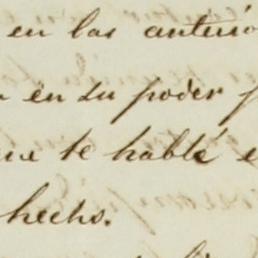 en las anterio
en su poder
ue te hablé e
hecho.